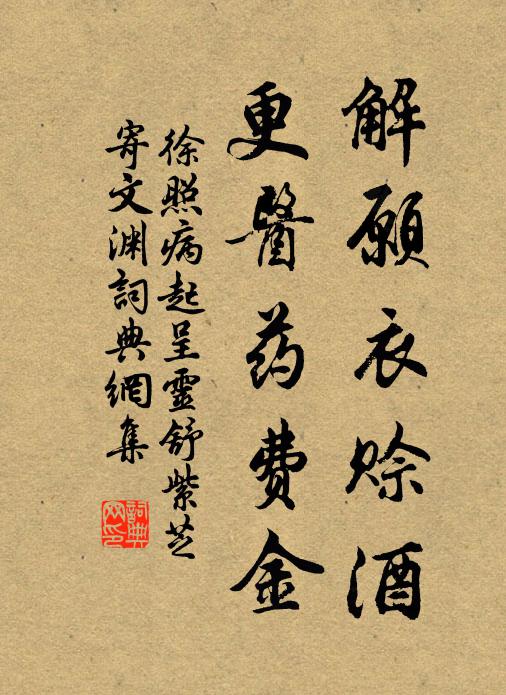 解願衣赊酒
更醫药費金
徐照病起呈靈舒紫芝
寄文渊詞典網集
詞典
网印